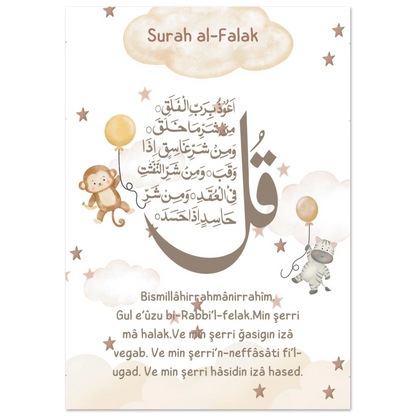 Surah al-Falak
اَعُوذُ بِرَبِّ الْفَلَقِۙ
مِنْ شَرِّ مَا خَلَقَۙ
وَمِنْ شَرِّ غَاسِقٍ اِذَا
وَقَبَۙ وَمِنْ شَرِّ النَّفَّاثَاتِ
فِي الْعُقَدِۙ وَمِنْ شَرِّ
حَاسِدٍ اِذَا حَسَدَ
قُلْ
Bismillâhirrahmânirrahîm
Gul e'ûzu bi-Rabbi'l-felak.Min şerri
mâ halak.Ve min şerri ğasigın izâ
vegab. Ve min şerri'n-neffâsâti fi'l-
ugad. Ve min şerri hâsidin izâ hased.